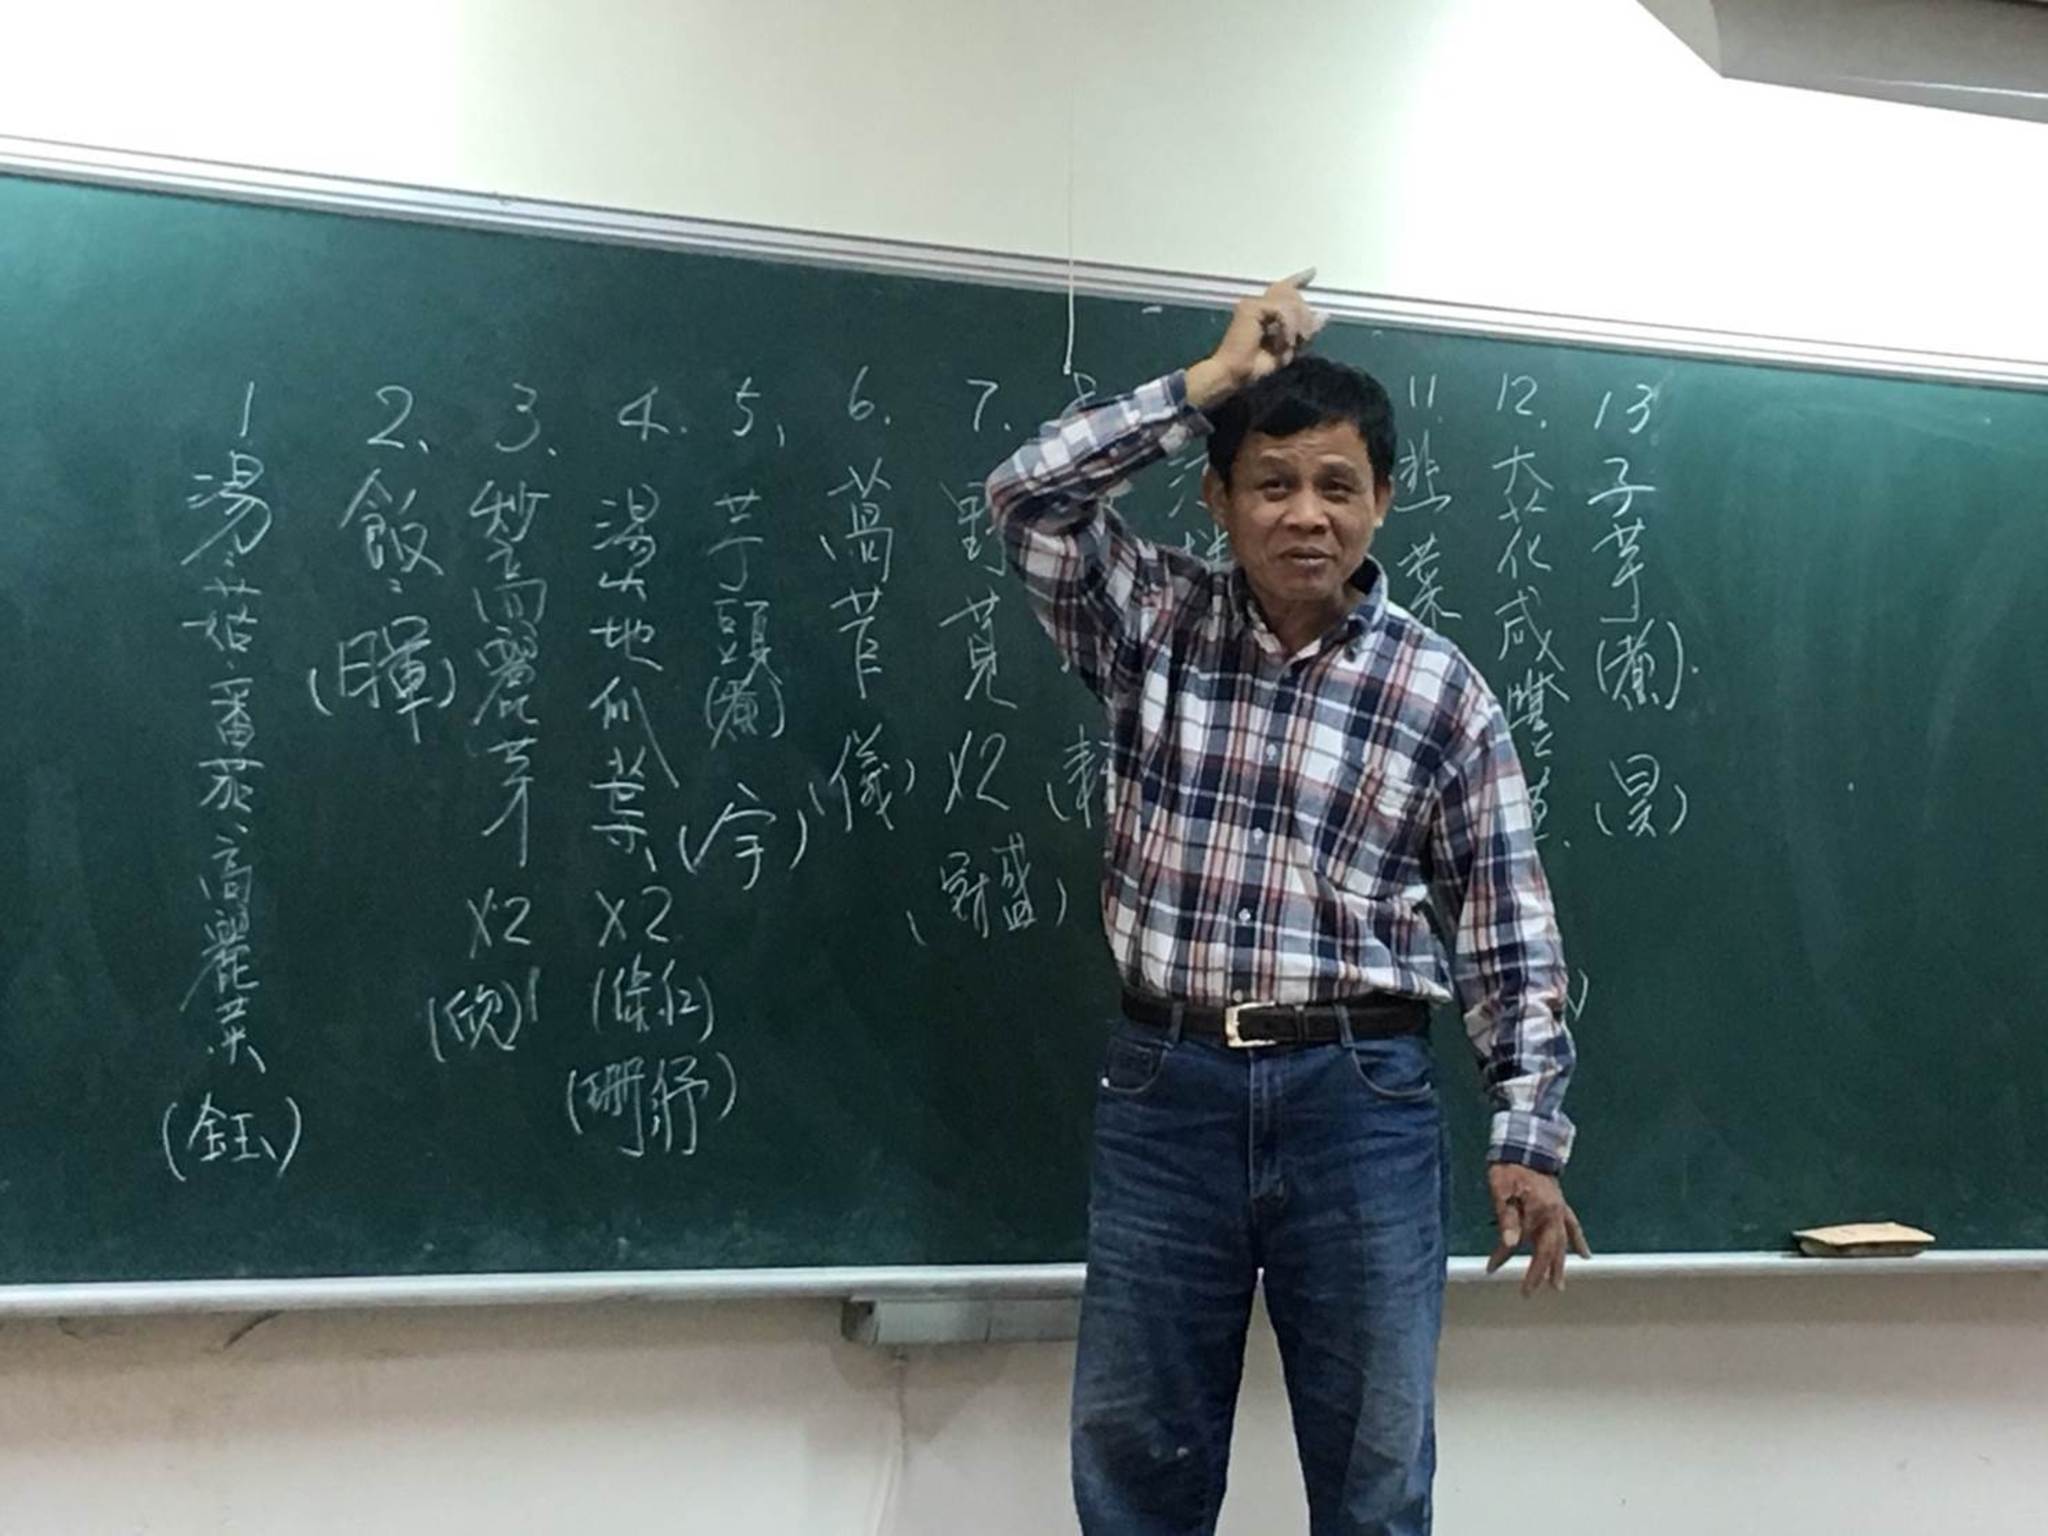 1 湯:菇、番茄、高麗菜 (鈺)
2、飯:(暉)
3、炒高麗芽 X2 (欣)
4. 燙地瓜葉、X2 (條仁) (珊紓)
5、芋頭(煮) (宇)
6. 萵苣 (儀)
7. 野莧 X2 (財盛)
11. 韭菜
12. 大花咸豐草.
13 子芋(煮). (昊)